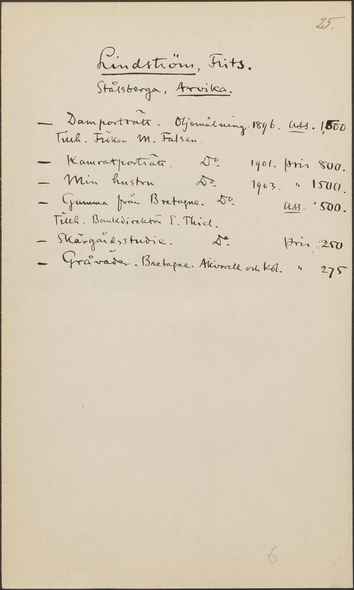 25.
Lindström, Frits.
Stålsberga, Arvika.
— Damporträtt. Oljemålning. 1896. Ass. 1,500
Tillh. Fröken M. Falsen.
— Kamratporträtt. Do. 1901. Pris 800.
— Min hustru Do. 1903. " 1500.
— Gumma från Bretagne. Do. Ass. 500.
Tillh. Bankdirektör E. Thiel.
— Skärgårdsstudie. Do. Pris. 250
— Gråväder. Bretagne. Akvarell och kol. " 275
6